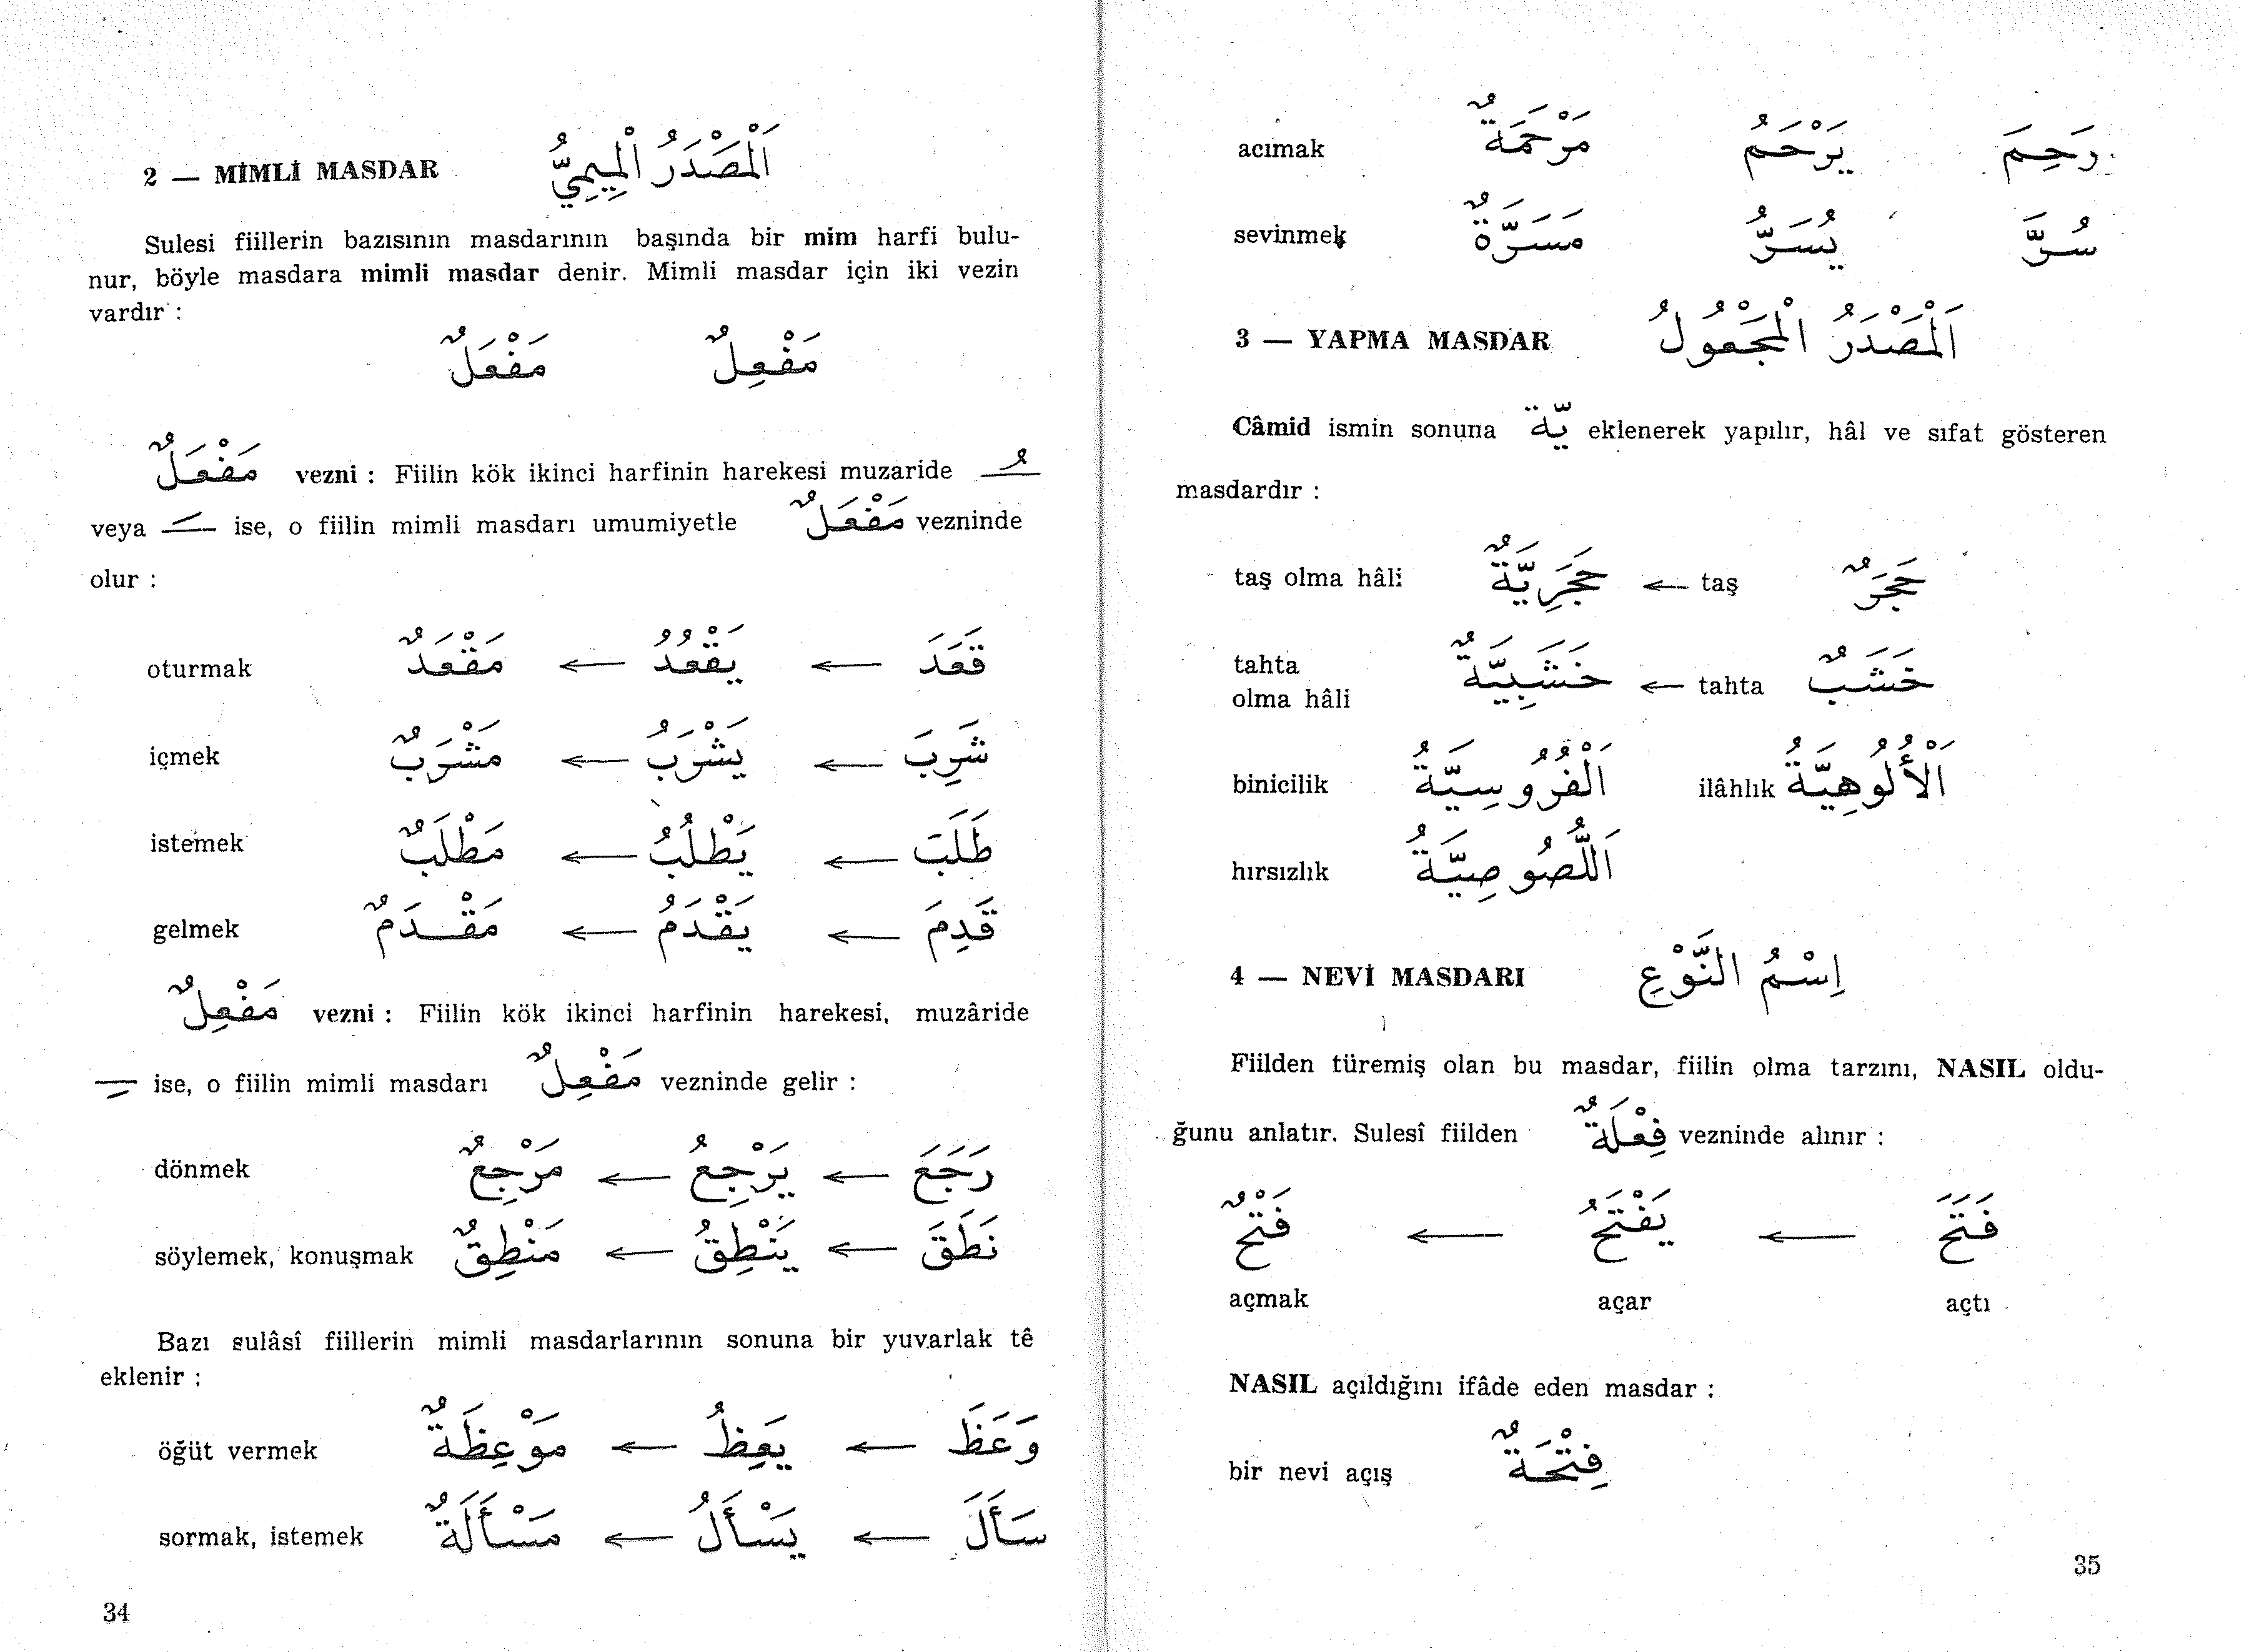 2 — MİMLİ MASDAR اَلْمَصْدَرُ الْمِيمِيُّ
Sulesi fiillerin bazısının masdarının başında bir mim harfi bulu-
nur, böyle masdara mimli masdar denir. Mimli masdar için iki vezin
vardır :
مَفْعِلٌ مَفْعَلٌ
مَفْعَلٌ vezni : Fiilin kök ikinci harfinin harekesi muzaride ـُ
veya ـَ ise, o fiilin mimli masdarı umumiyetle مَفْعَلٌ vezninde
olur :
oturmak قَعَدَ ← يَقْعُدُ ← مَقْعَدٌ
içmek شَرِبَ ← يَشْرَبُ ← مَشْرَبٌ
istemek طَلَبَ ← يَطْلُبُ ← مَطْلَبٌ
gelmek قَدِمَ ← يَقْدَمُ ← مَقْدَمٌ
مَفْعِلٌ vezni : Fiilin kök ikinci harfinin harekesi, muzâride
ـِ ise, o fiilin mimli masdarı مَفْعِلٌ vezninde gelir :
dönmek رَجَعَ ← يَرْجِعُ ← مَرْجِعٌ
söylemek, konuşmak نَطَقَ ← يَنْطِقُ ← مَنْطِقٌ
Bazı sulâsî fiillerin mimli masdarlarının sonuna bir yuvarlak tê
eklenir :
öğüt vermek وَعَظَ ← يَعِظُ ← مَوْعِظَةٌ
sormak, istemek سَأَلَ ← يَسْأَلُ ← مَسْأَلَةٌ
34
acımak رَحِمَ يَرْحَمُ مَرْحَمَةٌ
sevinmek سُرَّ يُسَرُّ مَسَرَّةٌ
3 — YAPMA MASDAR اَلْمَصْدَرُ الْمَجْعُولُ
Câmid ismin sonuna يّة eklenerek yapılır, hâl ve sıfat gösteren
masdardır :
taş olma hâli حَجَرِيَّةٌ ← taş حَجَرٌ
tahta
olma hâli خَشَبِيَّةٌ ← tahta خَشَبٌ
binicilik اَلْفُرُوسِيَّةُ ilâhlık اَلْأُلُوهِيَّةُ
hırsızlık اَللُّصُوصِيَّةُ
4 — NEVİ MASDARI اِسْمُ النَّوْعِ
Fiilden türemiş olan bu masdar, fiilin olma tarzını, NASIL oldu-
ğunu anlatır. Sulesî fiilden فِعْلَةٌ vezninde alınır :
فَتَحَ ← يَفْتَحُ ← فَتْحٌ
açmak açar açtı
NASIL açıldığını ifâde eden masdar :
bir nevi açış فِتْحَةٌ
35